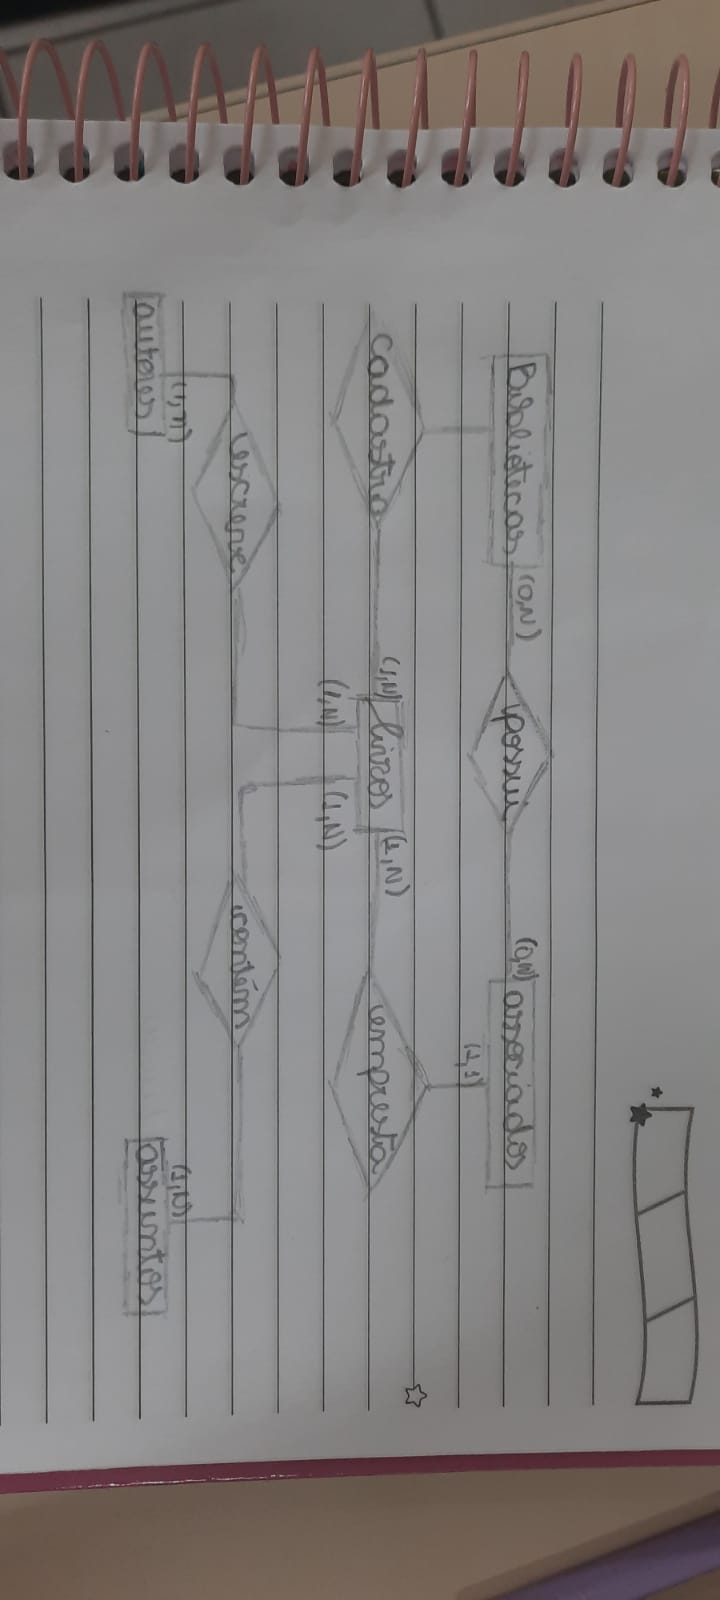 Bibliotecas (0,N) possui (0,N) associados
(1,1)
cadastra (1,N) livros (1,N) empresta
(1,N) (1,N)
escreve contém
(1,N) (1,N)
autores assuntos